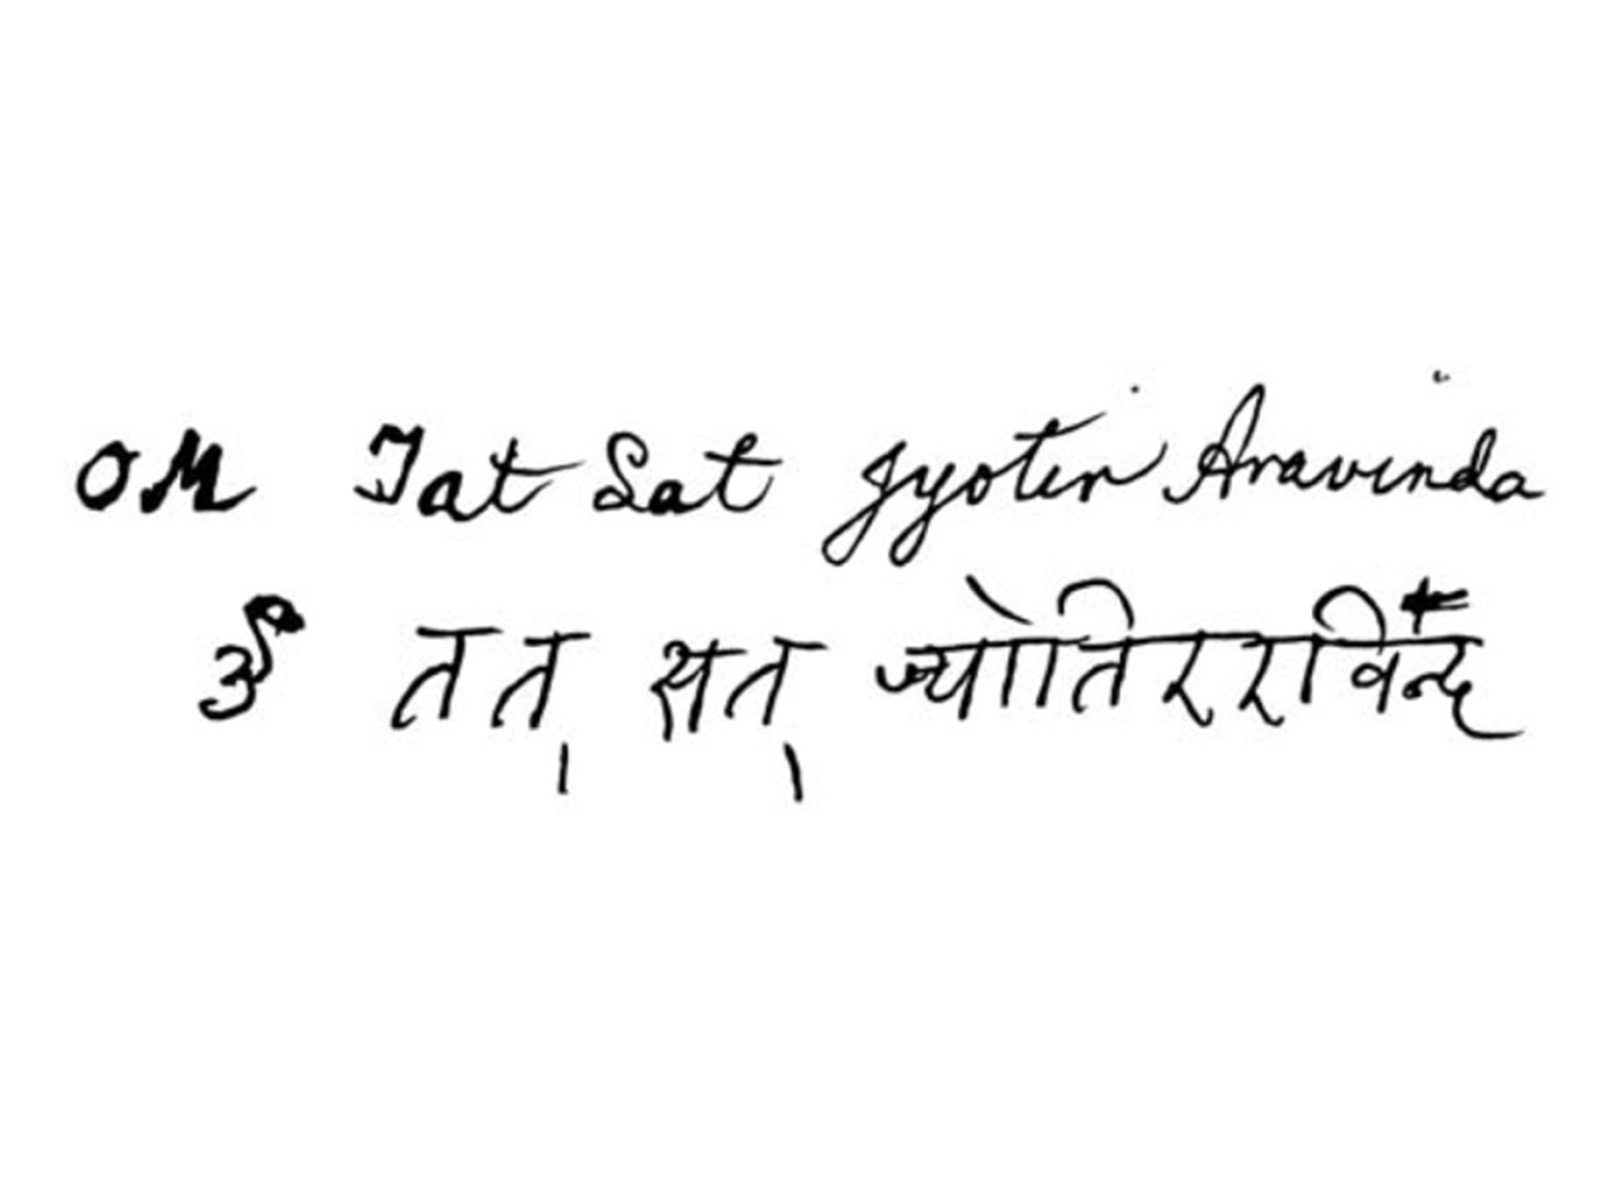 OM Tat Sat Jyotir Aravinda
ॐ तत् सत् ज्योतिररविन्द